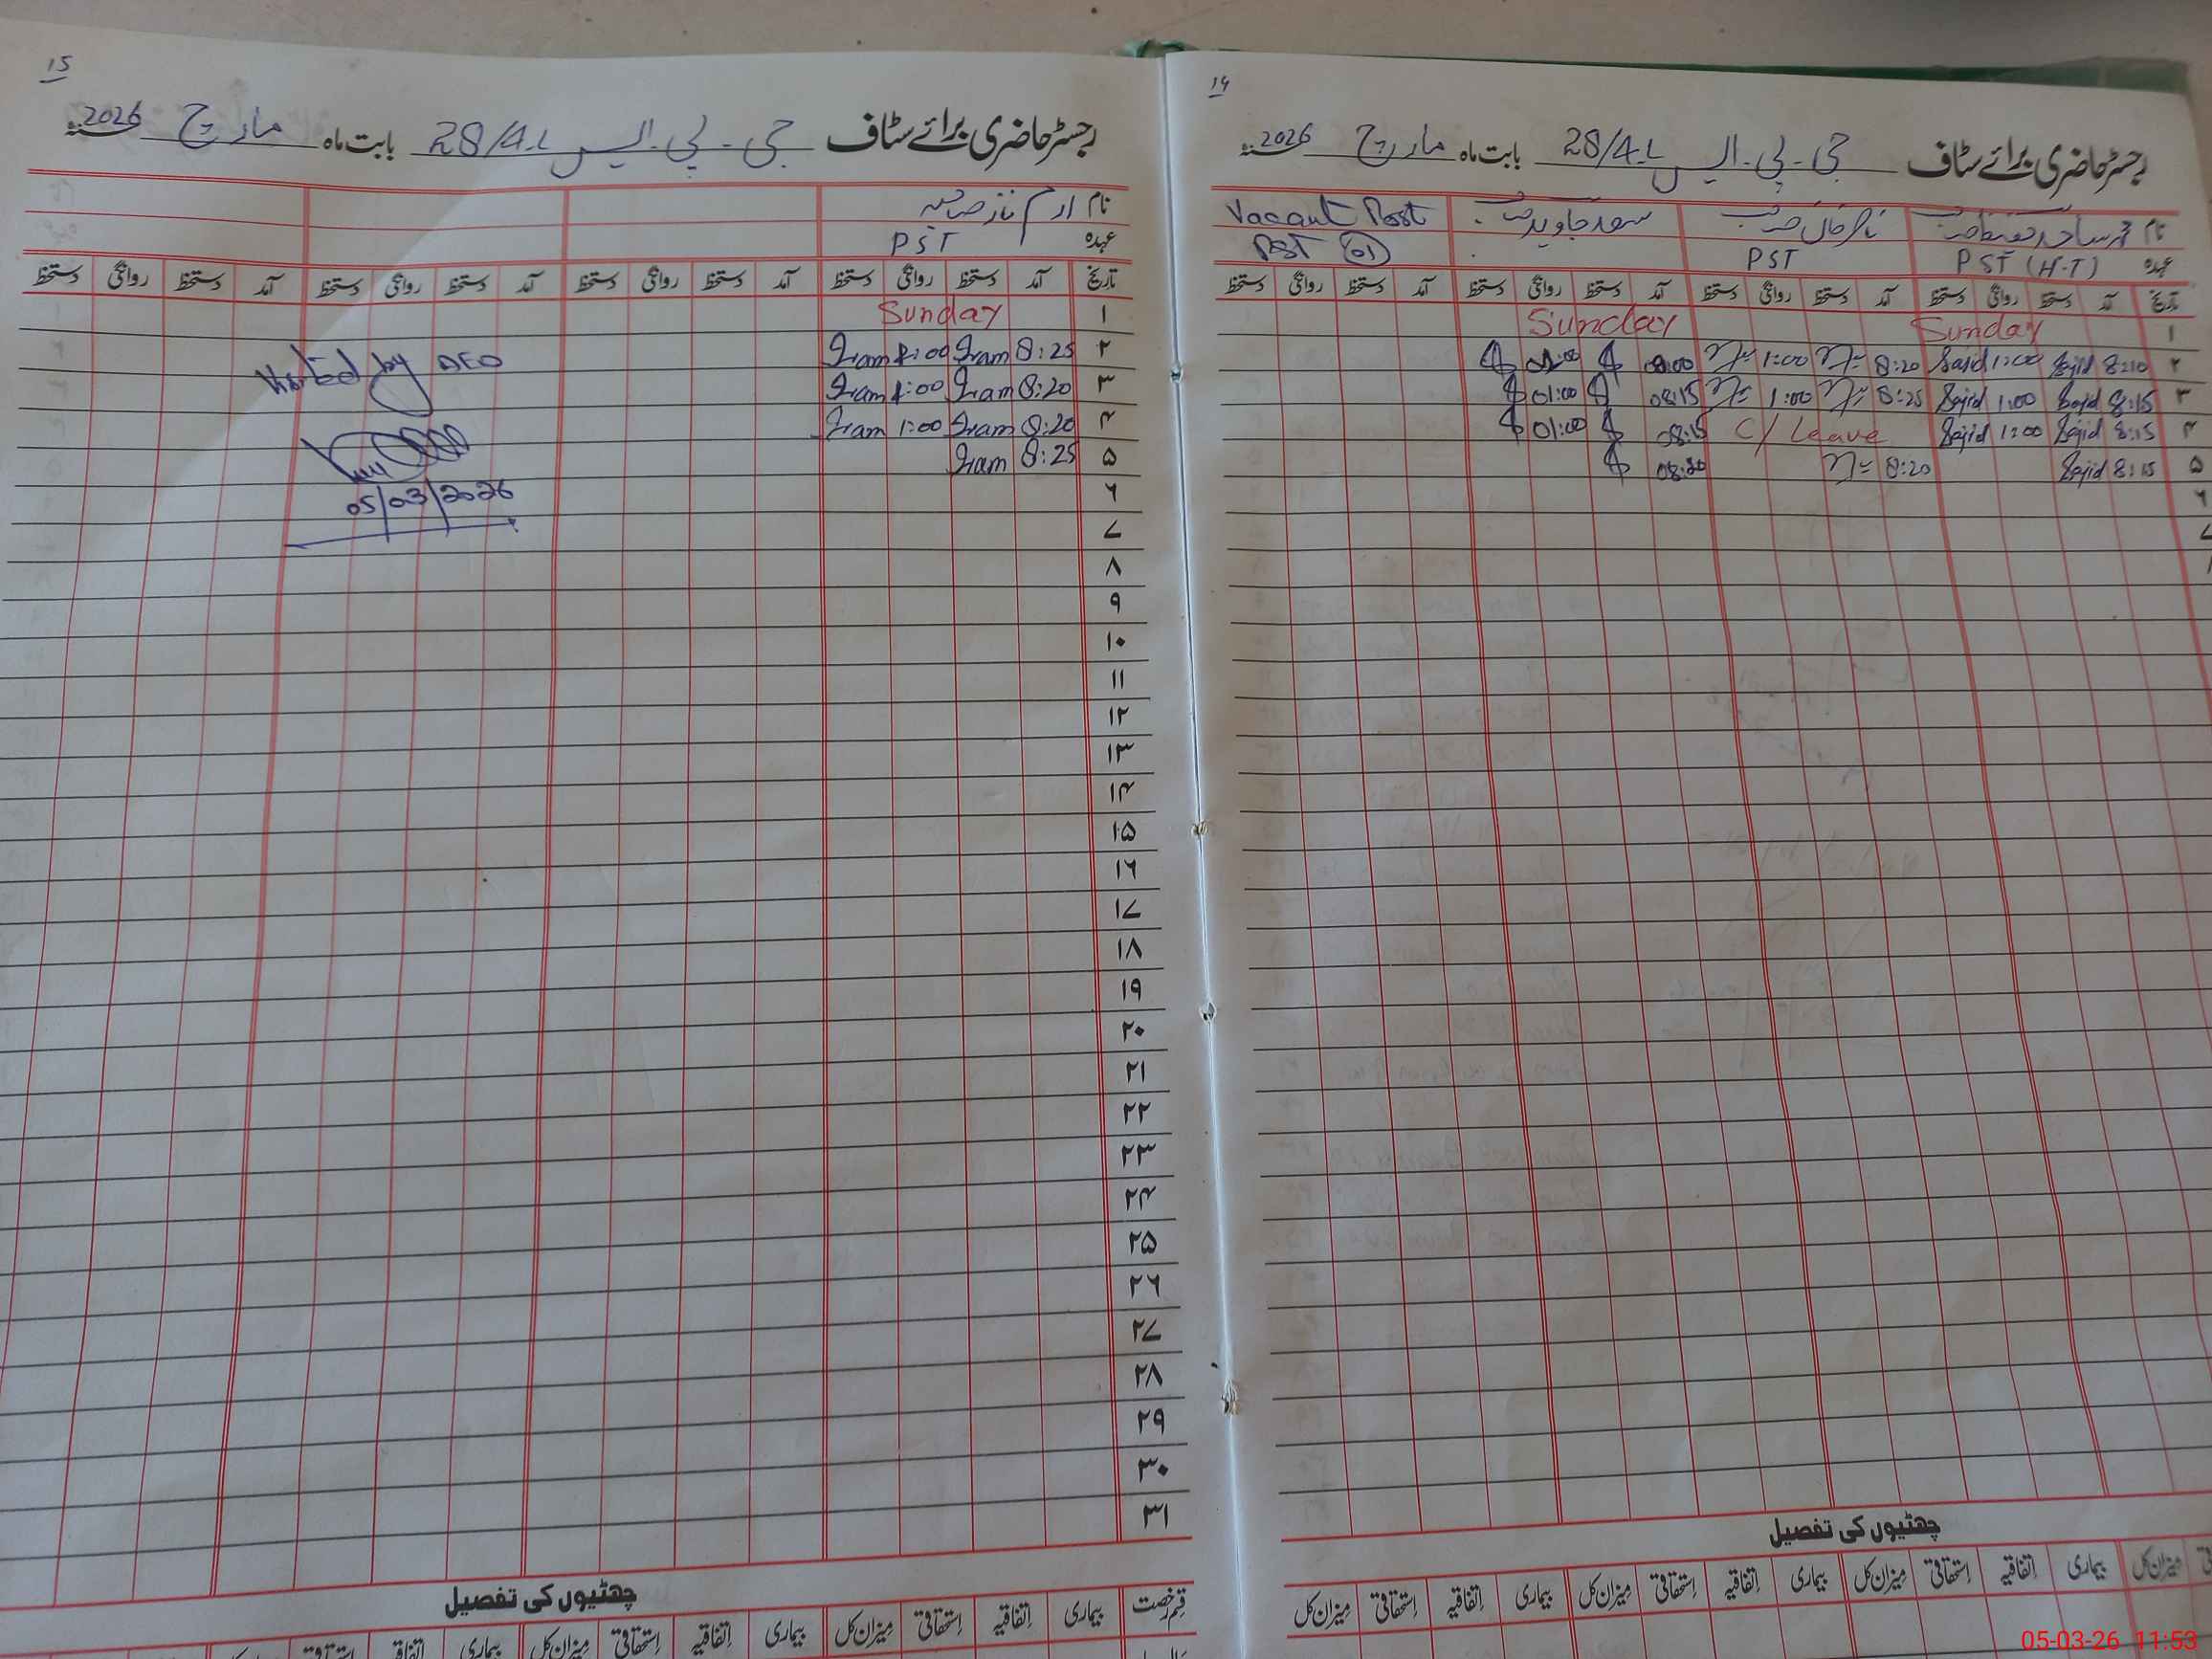 15
رجسٹر حاضری برائے سٹاف جی۔پی۔ایس 28/4-L بابت ماہ مارچ 2026
نام ارم ناز صاحبہ
عہدہ PST
تاریخ آمد دستخط روانگی دستخط آمد دستخط روانگی دستخط آمد دستخط روانگی دستخط آمد دستخط روانگی دستخط
۱ Sunday
۲ 8:25 Iram 1:00 Iram
۳ 8:20 Iram 1:00 Iram
۴ 8:20 Iram 1:00 Iram
۵ 8:25 Iram
۶
۷
۸
۹
۱۰
۱۱
۱۲
۱۳
۱۴
۱۵
۱۶
۱۷
۱۸
۱۹
۲۰
۲۱
۲۲
۲۳
۲۴
۲۵
۲۶
۲۷
۲۸
۲۹
۳۰
۳۱
Visited by AEO
05/03/2026
چھٹیوں کی تفصیل
قسم رخصت بیماری اتفاقیہ استحقاقی میزان کل بیماری اتفاقیہ استحقاقی میزان کل بیماری
14
رجسٹر حاضری برائے سٹاف جی۔پی۔ایس 28/4-L بابت ماہ مارچ 2026
نام محمد ساجد صاحب Vacant Post
عہدہ PST (H-T) PST PST 01
تاریخ آمد دستخط روانگی دستخط آمد دستخط روانگی دستخط آمد دستخط روانگی دستخط آمد دستخط روانگی دستخط
۱ Sunday Sunday
۲ 8:10 Sajid 1:00 Sajid 8:20 1:00 08:00 01:00
۳ 8:15 Sajid 1:00 Sajid 8:25 1:00 08:15 01:00
۴ 8:15 Sajid 1:00 Sajid C/ Leave 08:15 01:00
۵ 8:15 Sajid 8:20
۶
۷
چھٹیوں کی تفصیل
میزان کل بیماری اتفاقیہ استحقاقی میزان کل بیماری اتفاقیہ استحقاقی میزان کل بیماری اتفاقیہ استحقاقی میزان کل
05-03-26 11:53